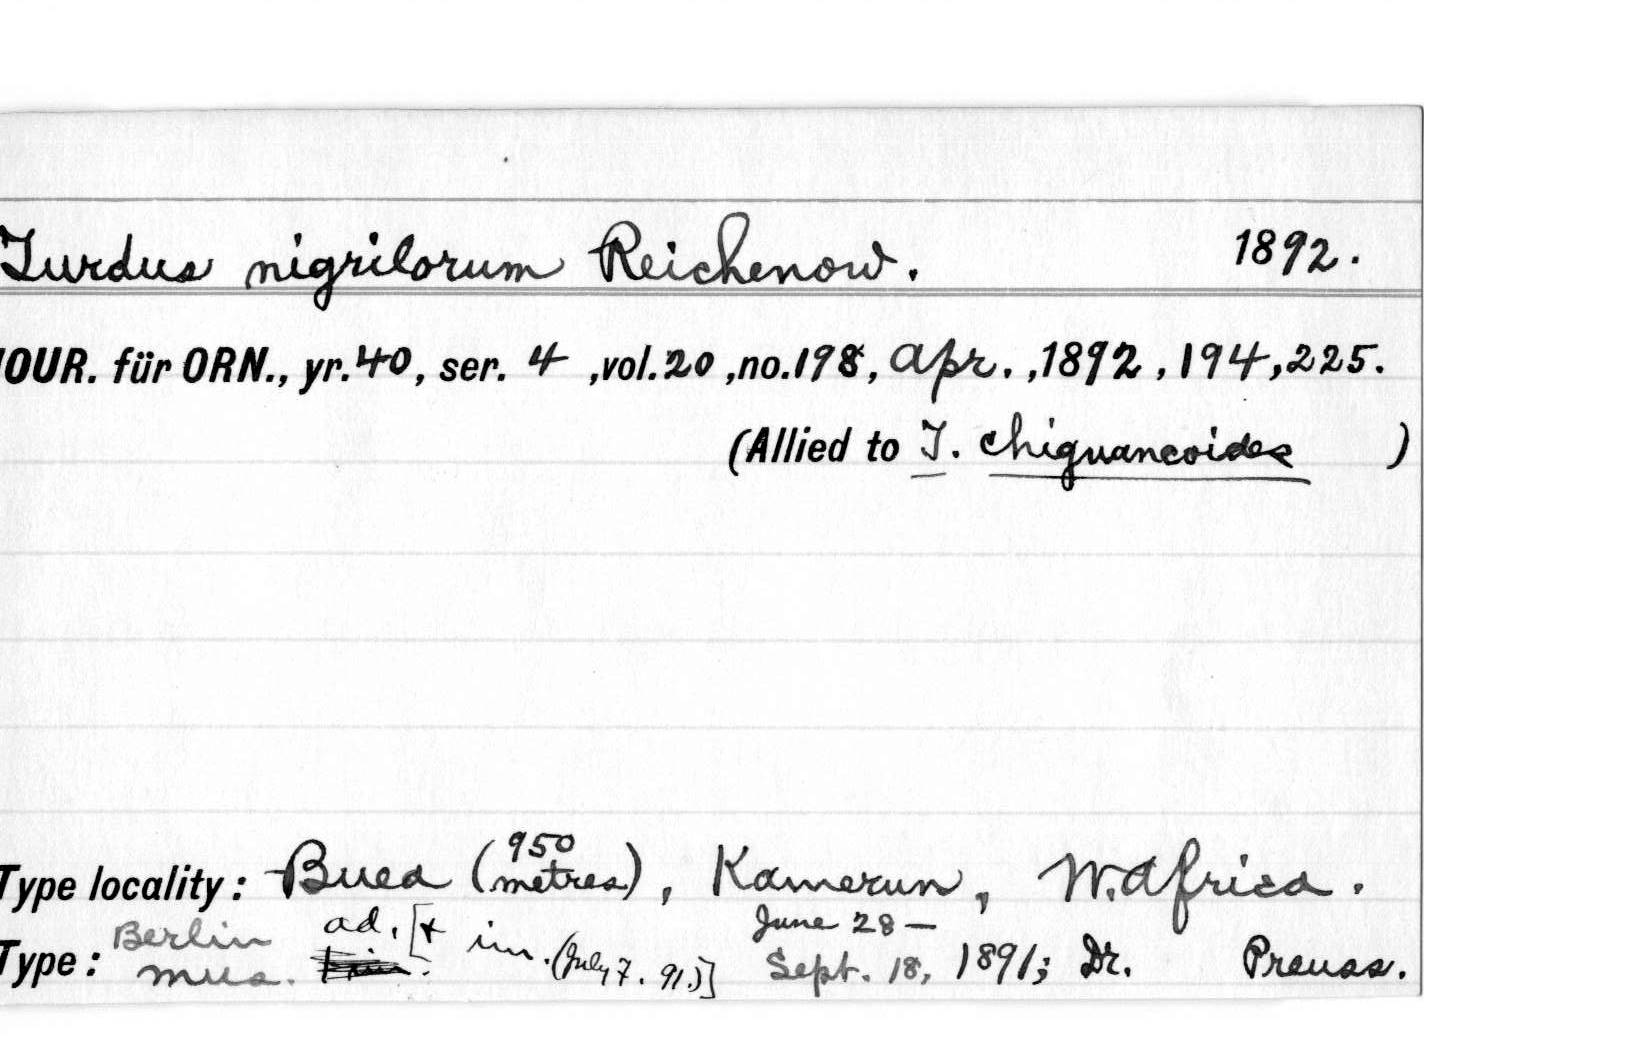 Turdus nigrilorum Reichenow. 1892.
JOUR. für ORN., yr. 40, ser. 4, vol. 20, no. 198, Apr., 1892, 194, 225.
(Allied to T. chiguancoides )
Type locality: Buea (950 metres), Kamerun, W. Africa.
Type: Berlin mus. ad. [+ im. (July 7. 91.)] June 28 – Sept. 18, 1891; Dr. Preuss.